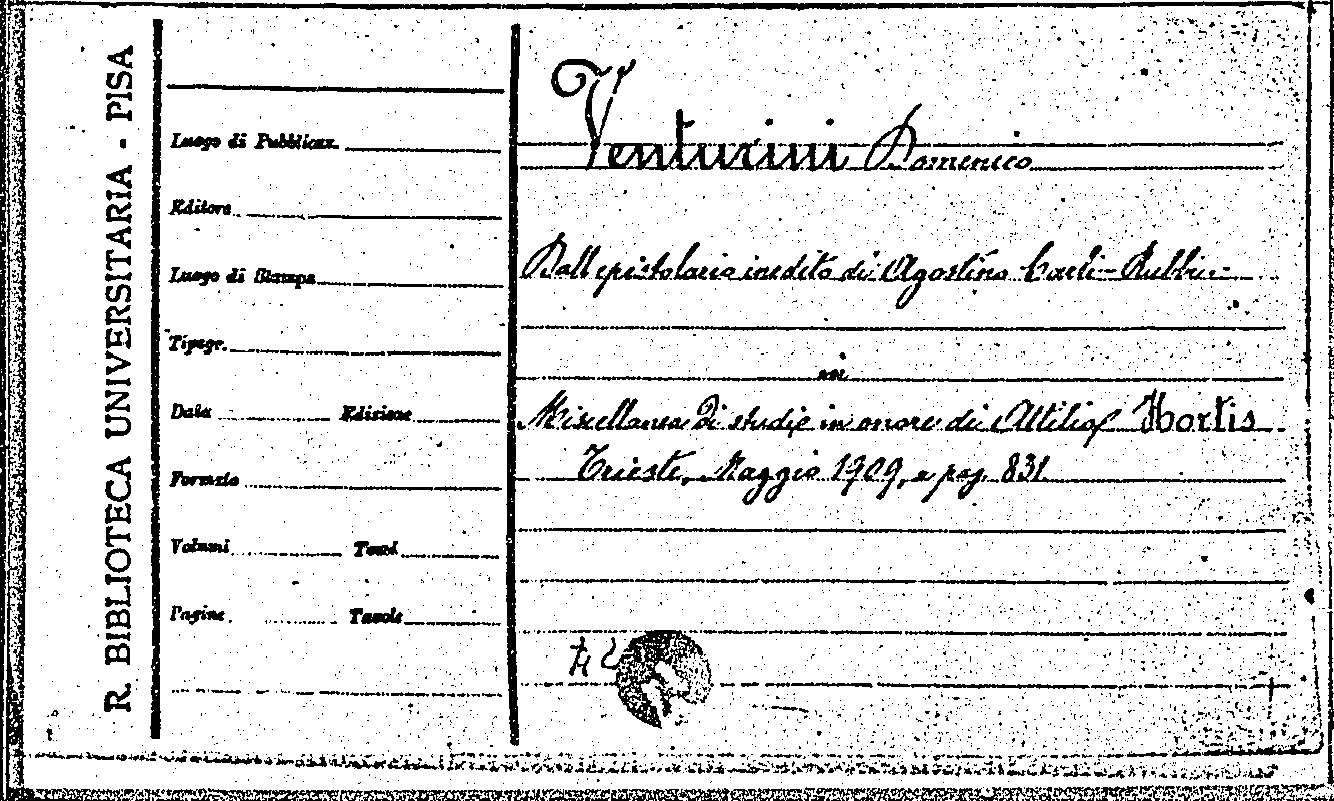 R. BIBLIOTECA UNIVERSITARIA - PISA
Luogo di Pubblicaz.
Editore
Luogo di Stampa
Tipogr.
Data Edizione
Formato
Volumi Tomi
Pagine Tavole
Venturini Domenico
Dall'epistolario inedito di Agostino Carli-Rubbi
in
Miscellanea di studi in onore di Attilio Hortis
Trieste, Maggio 1909, a pag. 831